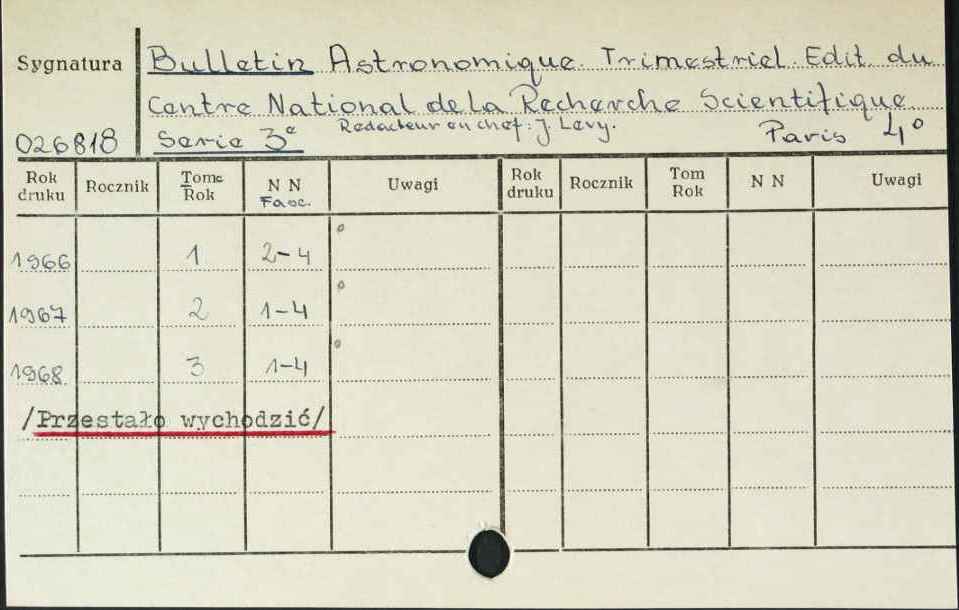 Sygnatura
Bulletin Astronomique. Trimestriel. Edit. du
Centre National de la Recherche Scientifique.
026818 Serie 3e Redacteur en chef: J. Levy. Paris 4°
Rok druku Rocznik Tome Rok N N Fasc. Uwagi Rok druku Rocznik Tom Rok N N Uwagi
1966 1 2-4 °
1967 2 1-4 °
1968 3 1-4 °
/Przestało wychodzić/